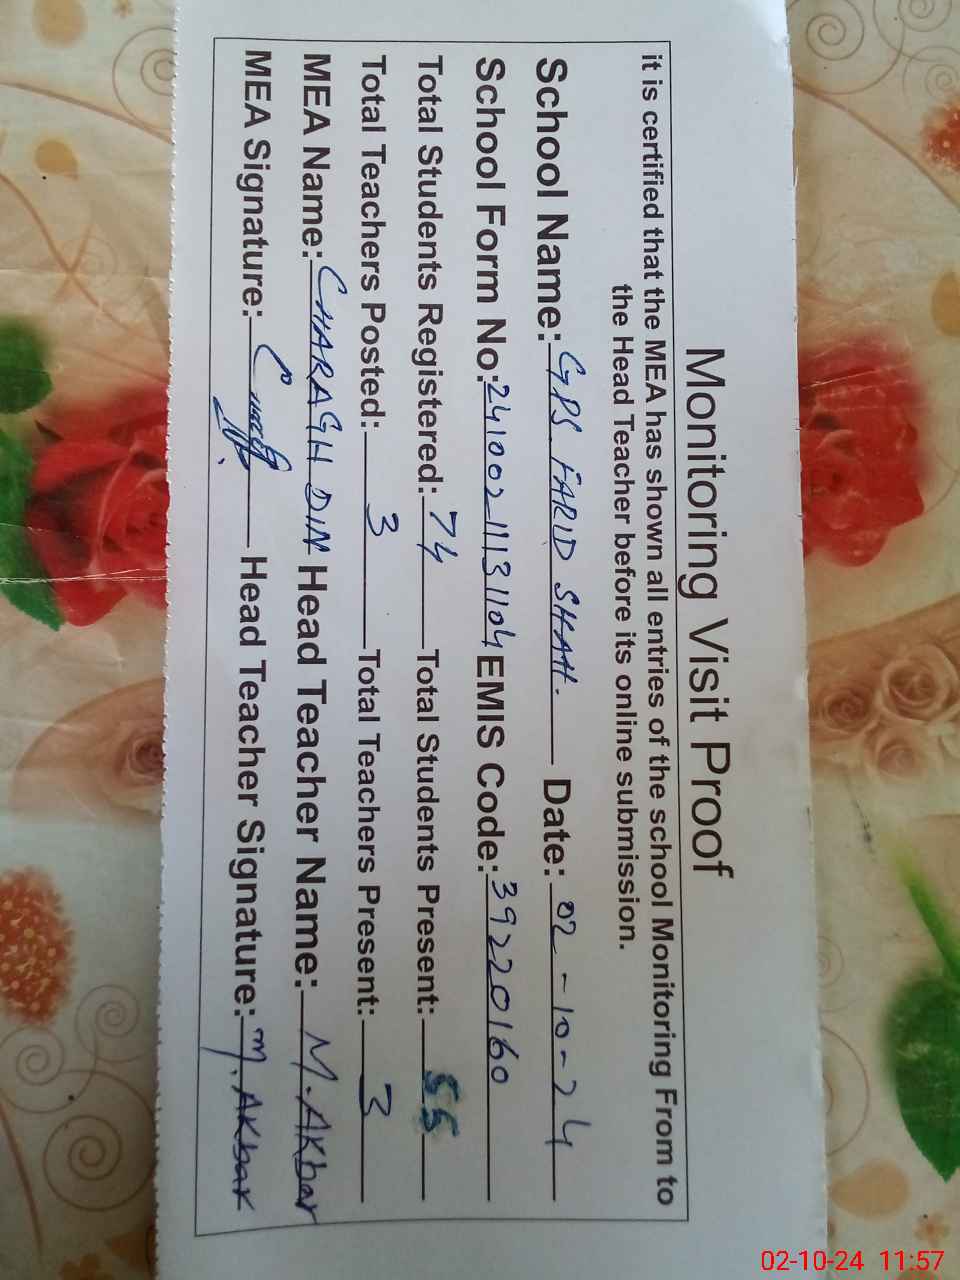 Monitoring Visit Proof
it is certified that the MEA has shown all entries of the school Monitoring From to
the Head Teacher before its online submission.
School Name: GPS FARID SHAH. Date: 02-10-24
School Form No: 2410021131104 EMIS Code: 39220160
Total Students Registered: 74 Total Students Present: 55
Total Teachers Posted: 3 Total Teachers Present: 3
MEA Name: CHARAGH DIN Head Teacher Name: M. Akbar
MEA Signature: Head Teacher Signature: M. Akbar
02-10-24 11:57